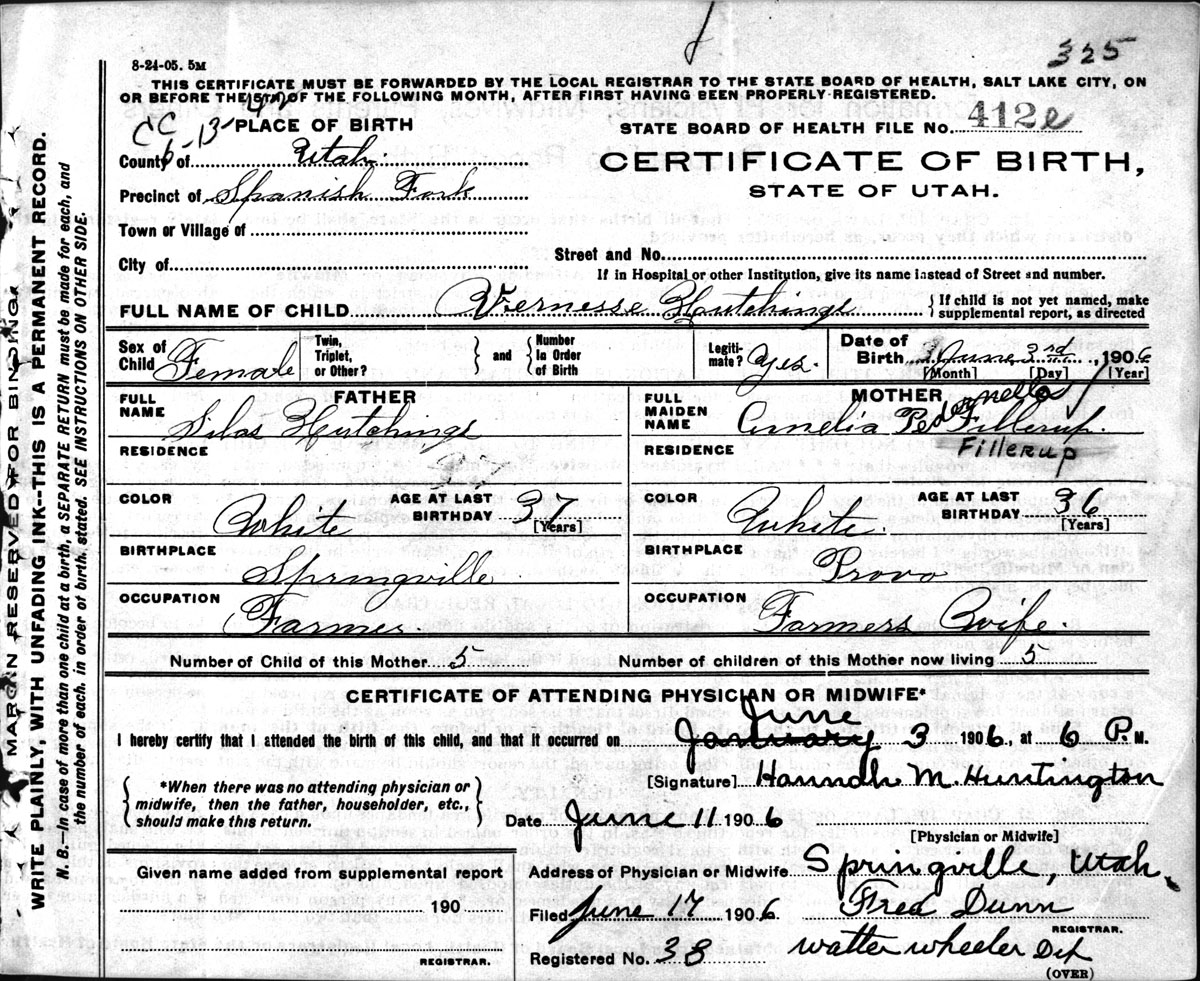 325
8-24-05. 5M
THIS CERTIFICATE MUST BE FORWARDED BY THE LOCAL REGISTRAR TO THE STATE BOARD OF HEALTH, SALT LAKE CITY, ON
OR BEFORE THE 5TH OF THE FOLLOWING MONTH, AFTER FIRST HAVING BEEN PROPERLY REGISTERED.
PLACE OF BIRTH
STATE BOARD OF HEALTH FILE NO. 412e
County of Utah
CERTIFICATE OF BIRTH,
STATE OF UTAH.
Precinct of Spanish Fork
Town or Village of
City of
Street and No.
If in Hospital or other Institution, give its name instead of Street and number.
FULL NAME OF CHILD Vernesse Hutchings { If child is not yet named, make supplemental report, as directed
Sex of Child Female Twin, Triplet, or Other? } and { Number in Order of Birth Legiti-mate? Yes. Date of Birth June 3rd, 1906
[Month] [Day] [Year]
FATHER
MOTHER
FULL NAME Silas Hutchings
FULL MAIDEN NAME Amelia Pedernella Fillerup.
RESIDENCE
RESIDENCE Fillerup
COLOR White AGE AT LAST BIRTHDAY 37 [Years]
COLOR White AGE AT LAST BIRTHDAY 36 [Years]
BIRTHPLACE Springville
BIRTHPLACE Provo
OCCUPATION Farmer.
OCCUPATION Farmers Wife.
Number of Child of this Mother 5 Number of children of this Mother now living 5
CERTIFICATE OF ATTENDING PHYSICIAN OR MIDWIFE*
June
I hereby certify that I attended the birth of this child, and that it occurred on January 3 1906, at 6 P. M.
[Signature] Hannah M. Huntington
{ *When there was no attending physician or midwife, then the father, householder, etc., should make this return. }
Date June 11 1906
[Physician or Midwife]
Given name added from supplemental report
190
REGISTRAR.
Address of Physician or Midwife Springville, Utah.
Filed June 17 1906 Fred Dunn
REGISTRAR.
Registered No. 38 Walter Wheeler Dep
(OVER)
A MARGIN RESERVED FOR BINDING
WRITE PLAINLY, WITH UNFADING INK--THIS IS A PERMANENT RECORD.
N. B.—In case of more than one child at a birth, a SEPARATE RETURN must be made for each, and
the number of each, in order of birth, stated. SEE INSTRUCTIONS ON OTHER SIDE.